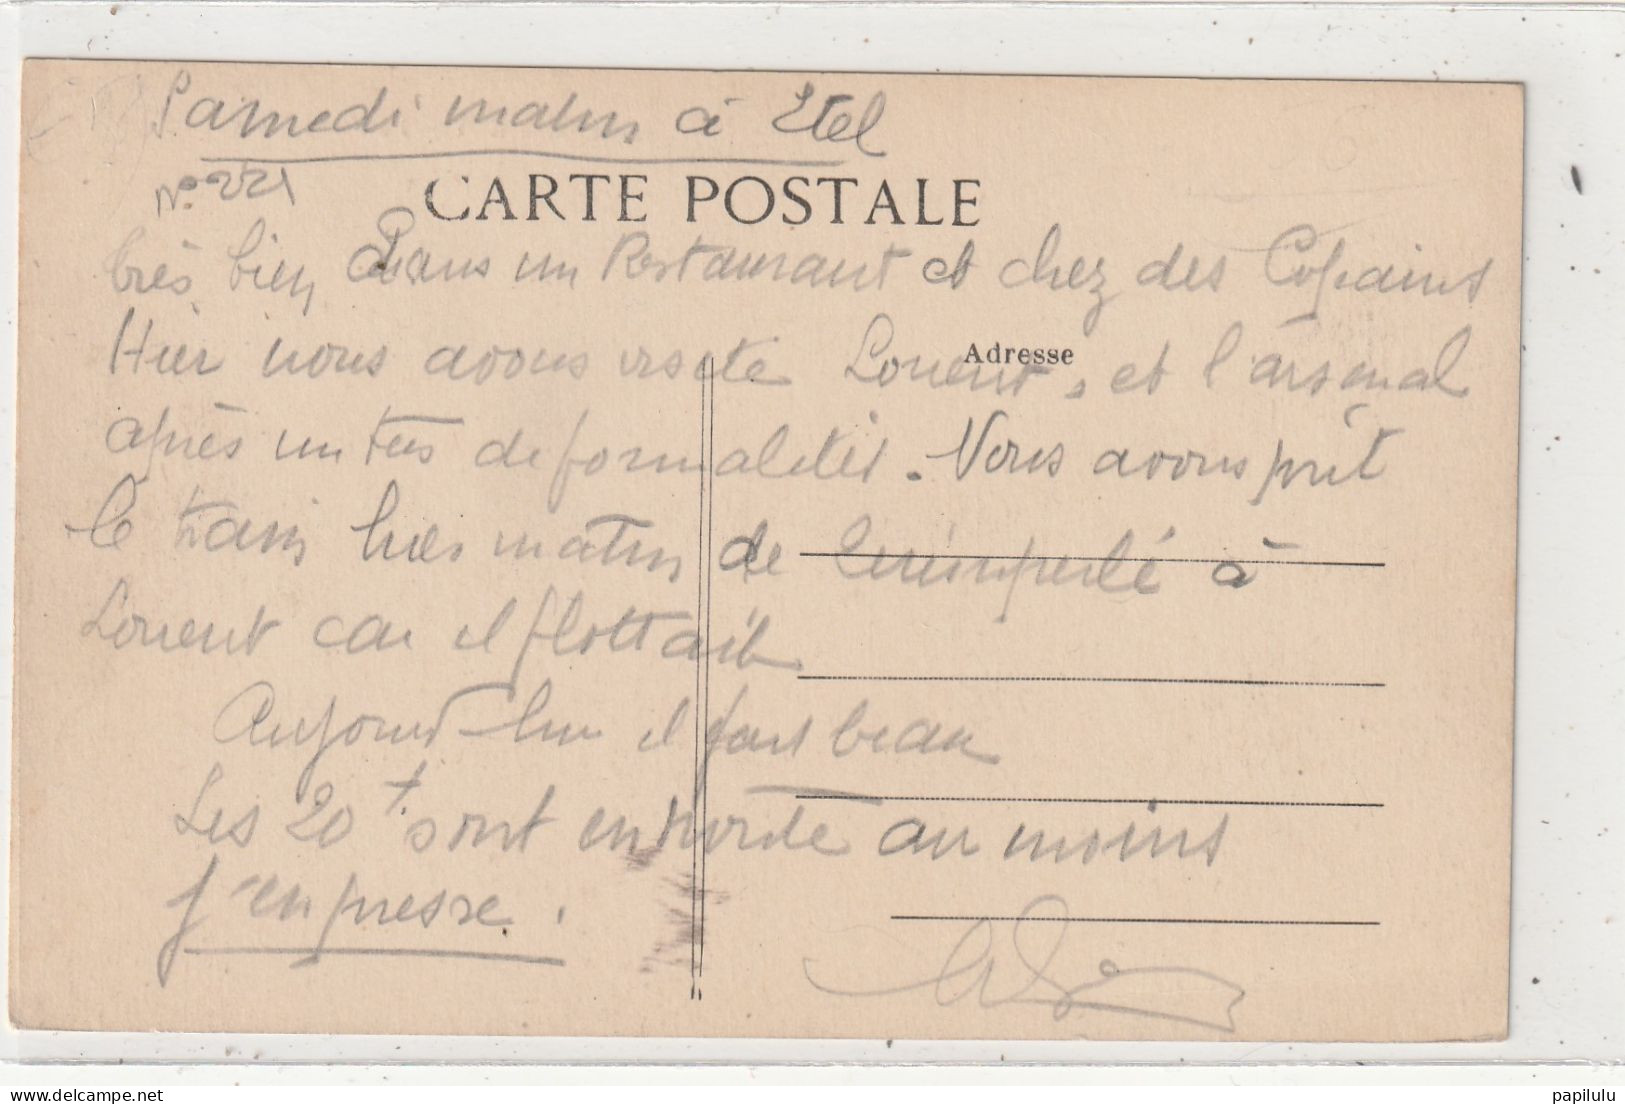 Samedi matin à Etel
N° 221
CARTE POSTALE
très bien, dans un Restaurant et chez des Copains
Hier nous avons visité Lorient, et l'arsenal
Adresse
après un tas de formalités. Nous avons prit
le train hier matin de Quimperlé à
Lorient car il flottait
Aujourd'hui il fait beau
Les 20 + sont en route au moins
J'en presse.
papilulu
delcampe.net